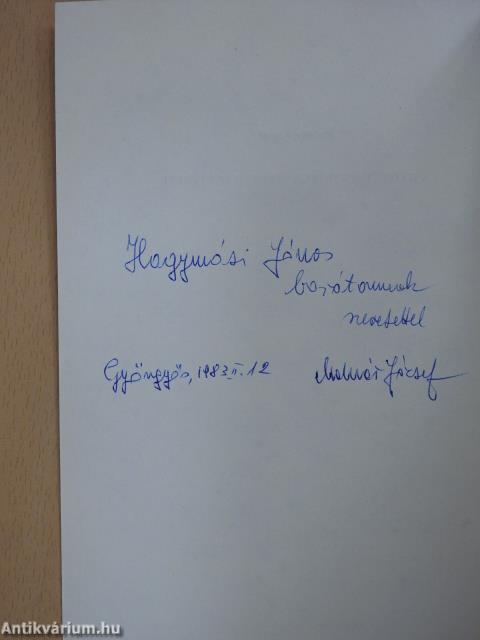 Hagymási János
barátomnak
szeretettel
Gyöngyös, 1983. II. 12
Molnár József
Antikvárium.hu